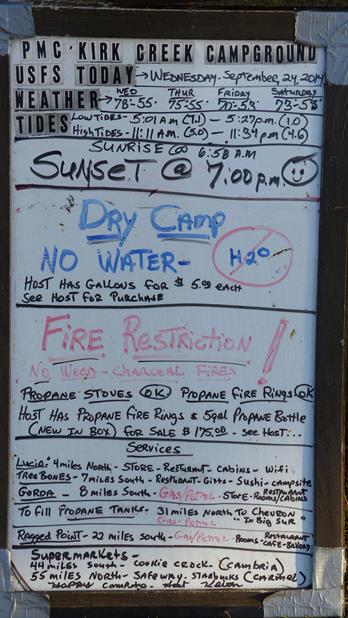 PMC · KIRK CREEK CAMPGROUND
USFS TODAY → WEDNESDAY - September, 24, 2014
WEATHER → WED THUR FRIDAY SATURDAY
78-55 · 75-55 · 70-53 · 73-53
TIDES LOW TIDES - 5:01 AM (.7) — 5:27 p.m. (1.0)
HIGH TIDES - 11:11 A.M. (5.0) — 11:34 p.m. (4.6)
SUNRISE @ 6:58 A.M
SUNSET @ 7:00 p.m.
DRY CAMP
NO WATER - H2O
HOST HAS GALLONS FOR $ 5.00 EACH
SEE HOST FOR PURCHASE
FIRE RESTRICTION!
NO WOOD - CHARCOAL FIRES
PROPANE STOVES OK PROPANE FIRE RINGS OK
HOST HAS PROPANE FIRE RINGS & 5gal PROPANE BOTTLE
(NEW IN BOX) FOR SALE $ 175.00 - SEE HOST...
SERVICES
"LUCIA" 4 miles NORTH - STORE - RESTURANT - CABINS - WiFi
TREEBONES - 7 miles SOUTH - RESTURANT - GIFTS - SUSHI - CAMPSITE
GORDA - 8 miles SOUTH - GAS/PETROL - STORE - RESTURANT ROOMS/CABINS
TO FILL PROPANE TANKS - 31 miles NORTH TO CHEVRON
GAS-PETROL "IN BIG SUR"
RAGGED POINT - 22 miles SOUTH - GAS/PETROL - ROOMS - RESTAURANT CAFE - BAKERY
SUPERMARKETS -
44 miles SOUTH - COOKIE CROCK (CAMBRIA)
55 miles NORTH - SAFEWAY, STARBUCKS (CARMEL)
HAPPY CAMPING - HOST